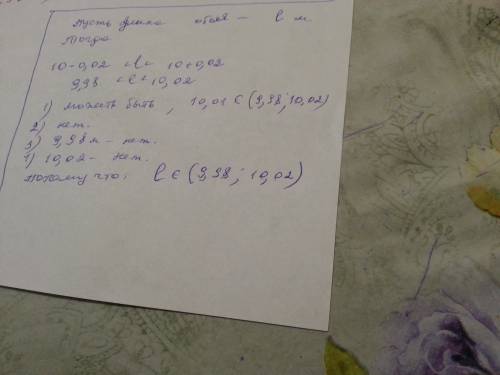 Пусть длина обоев – l м.
Тогда
10-0,02 <l< 10+0,02
9,98 <l<10,02
1) может быть, 10,01 ∈ (9,98; 10,02)
2) нет.
3) 9,98 м – нет.
4) 10,02 – нет.
Потому что: l ∈ (9,98; 10,02)